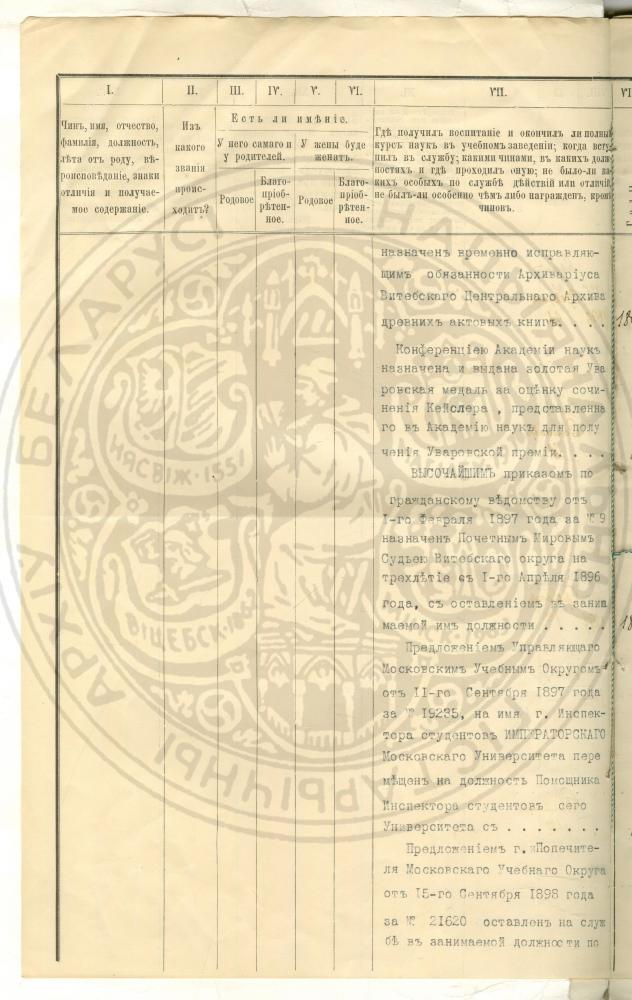 I.
II.
III.
IV.
V.
VI.
VII.
Чинъ, имя, отчество,
фамилія, должность,
лѣта отъ роду, вѣ-
роисповѣданіе, знаки
отличія и получае-
мое содержаніе.
Изъ
какого
званія
проис-
ходитъ?
Есть ли имѣніе.
У него самаго и
у родителей.
У жены буде
женатъ.
Родовое
Благо-
пріоб-
рѣтен-
ное.
Родовое
Благо-
пріоб-
рѣтен-
ное.
Гдѣ получилъ воспитаніе и окончилъ ли полны
курсъ наукъ въ учебномъ заведеніи; когда всту
пилъ въ службу; какими чинами, въ какихъ долж
ностяхъ и гдѣ проходилъ оную; не было-ли ка
кихъ особыхъ по службѣ дѣйствій или отличій
не былъ-ли особенно чѣмъ либо награжденъ, кром
чиновъ.
назначенъ временно исправляю-
щимъ обязанности Архиваріуса
Витебскаго Центральнаго Архива
древнихъ актовыхъ книгъ. . . .
Конференціею Академіи наукъ
назначена и выдана золотая Ува
ровская медаль за оцѣнку сочи-
ненія Кейслера , представленна
го въ Академію наукъ для полу
ченія Уваровской преміи. . . .
ВЫСОЧАЙШИМЪ приказомъ по
гражданскому вѣдомству отъ
I-го Февраля 1897 года за № 9
назначенъ Почетнымъ Мировымъ
Судьею Витебскаго округа на
трехлѣтіе съ I-го Апрѣля 1896
года, съ оставленіемъ въ занима
маемой имъ должности . . . . .
Предложеніемъ Управляющаго
Московскимъ Учебнымъ Округомъ
отъ II-го Сентября 1897 года
за № 19235, на имя г. Инспек-
тора студентовъ ИМПЕРАТОРСКАГО
Московскаго Университета пере
мѣщенъ на должность Помощника
Инспектора студентовъ сего
Университета съ . . . . . . .
Предложеніемъ г. Попечите-
ля Московскаго Учебнаго Округа
отъ 15-го Сентября 1898 года
за № 21620 оставленъ на служ
бѣ въ занимаемой должности по
НЯСВІЖ·155
ВІЦЕБСК·186